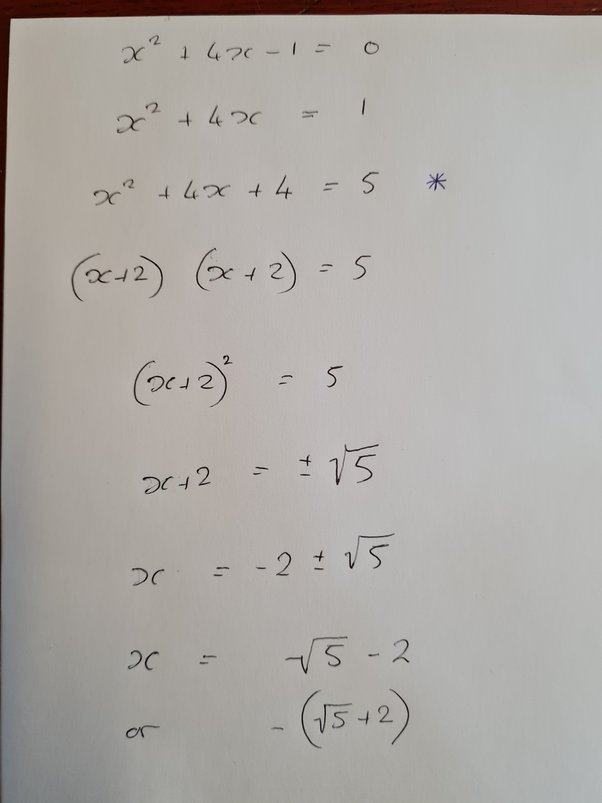 x² + 4x - 1 = 0
x² + 4x = 1
x² + 4x + 4 = 5 *
(x+2) (x+2) = 5
(x+2)² = 5
x+2 = ± √5
x = -2 ± √5
x = √5 - 2
or - (√5 + 2)